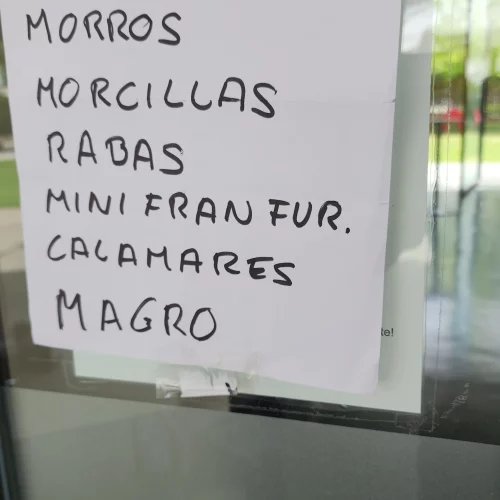 MORROS
MORCILLAS
RABAS
MINI FRAN FUR.
CALAMARES
MAGRO
te!